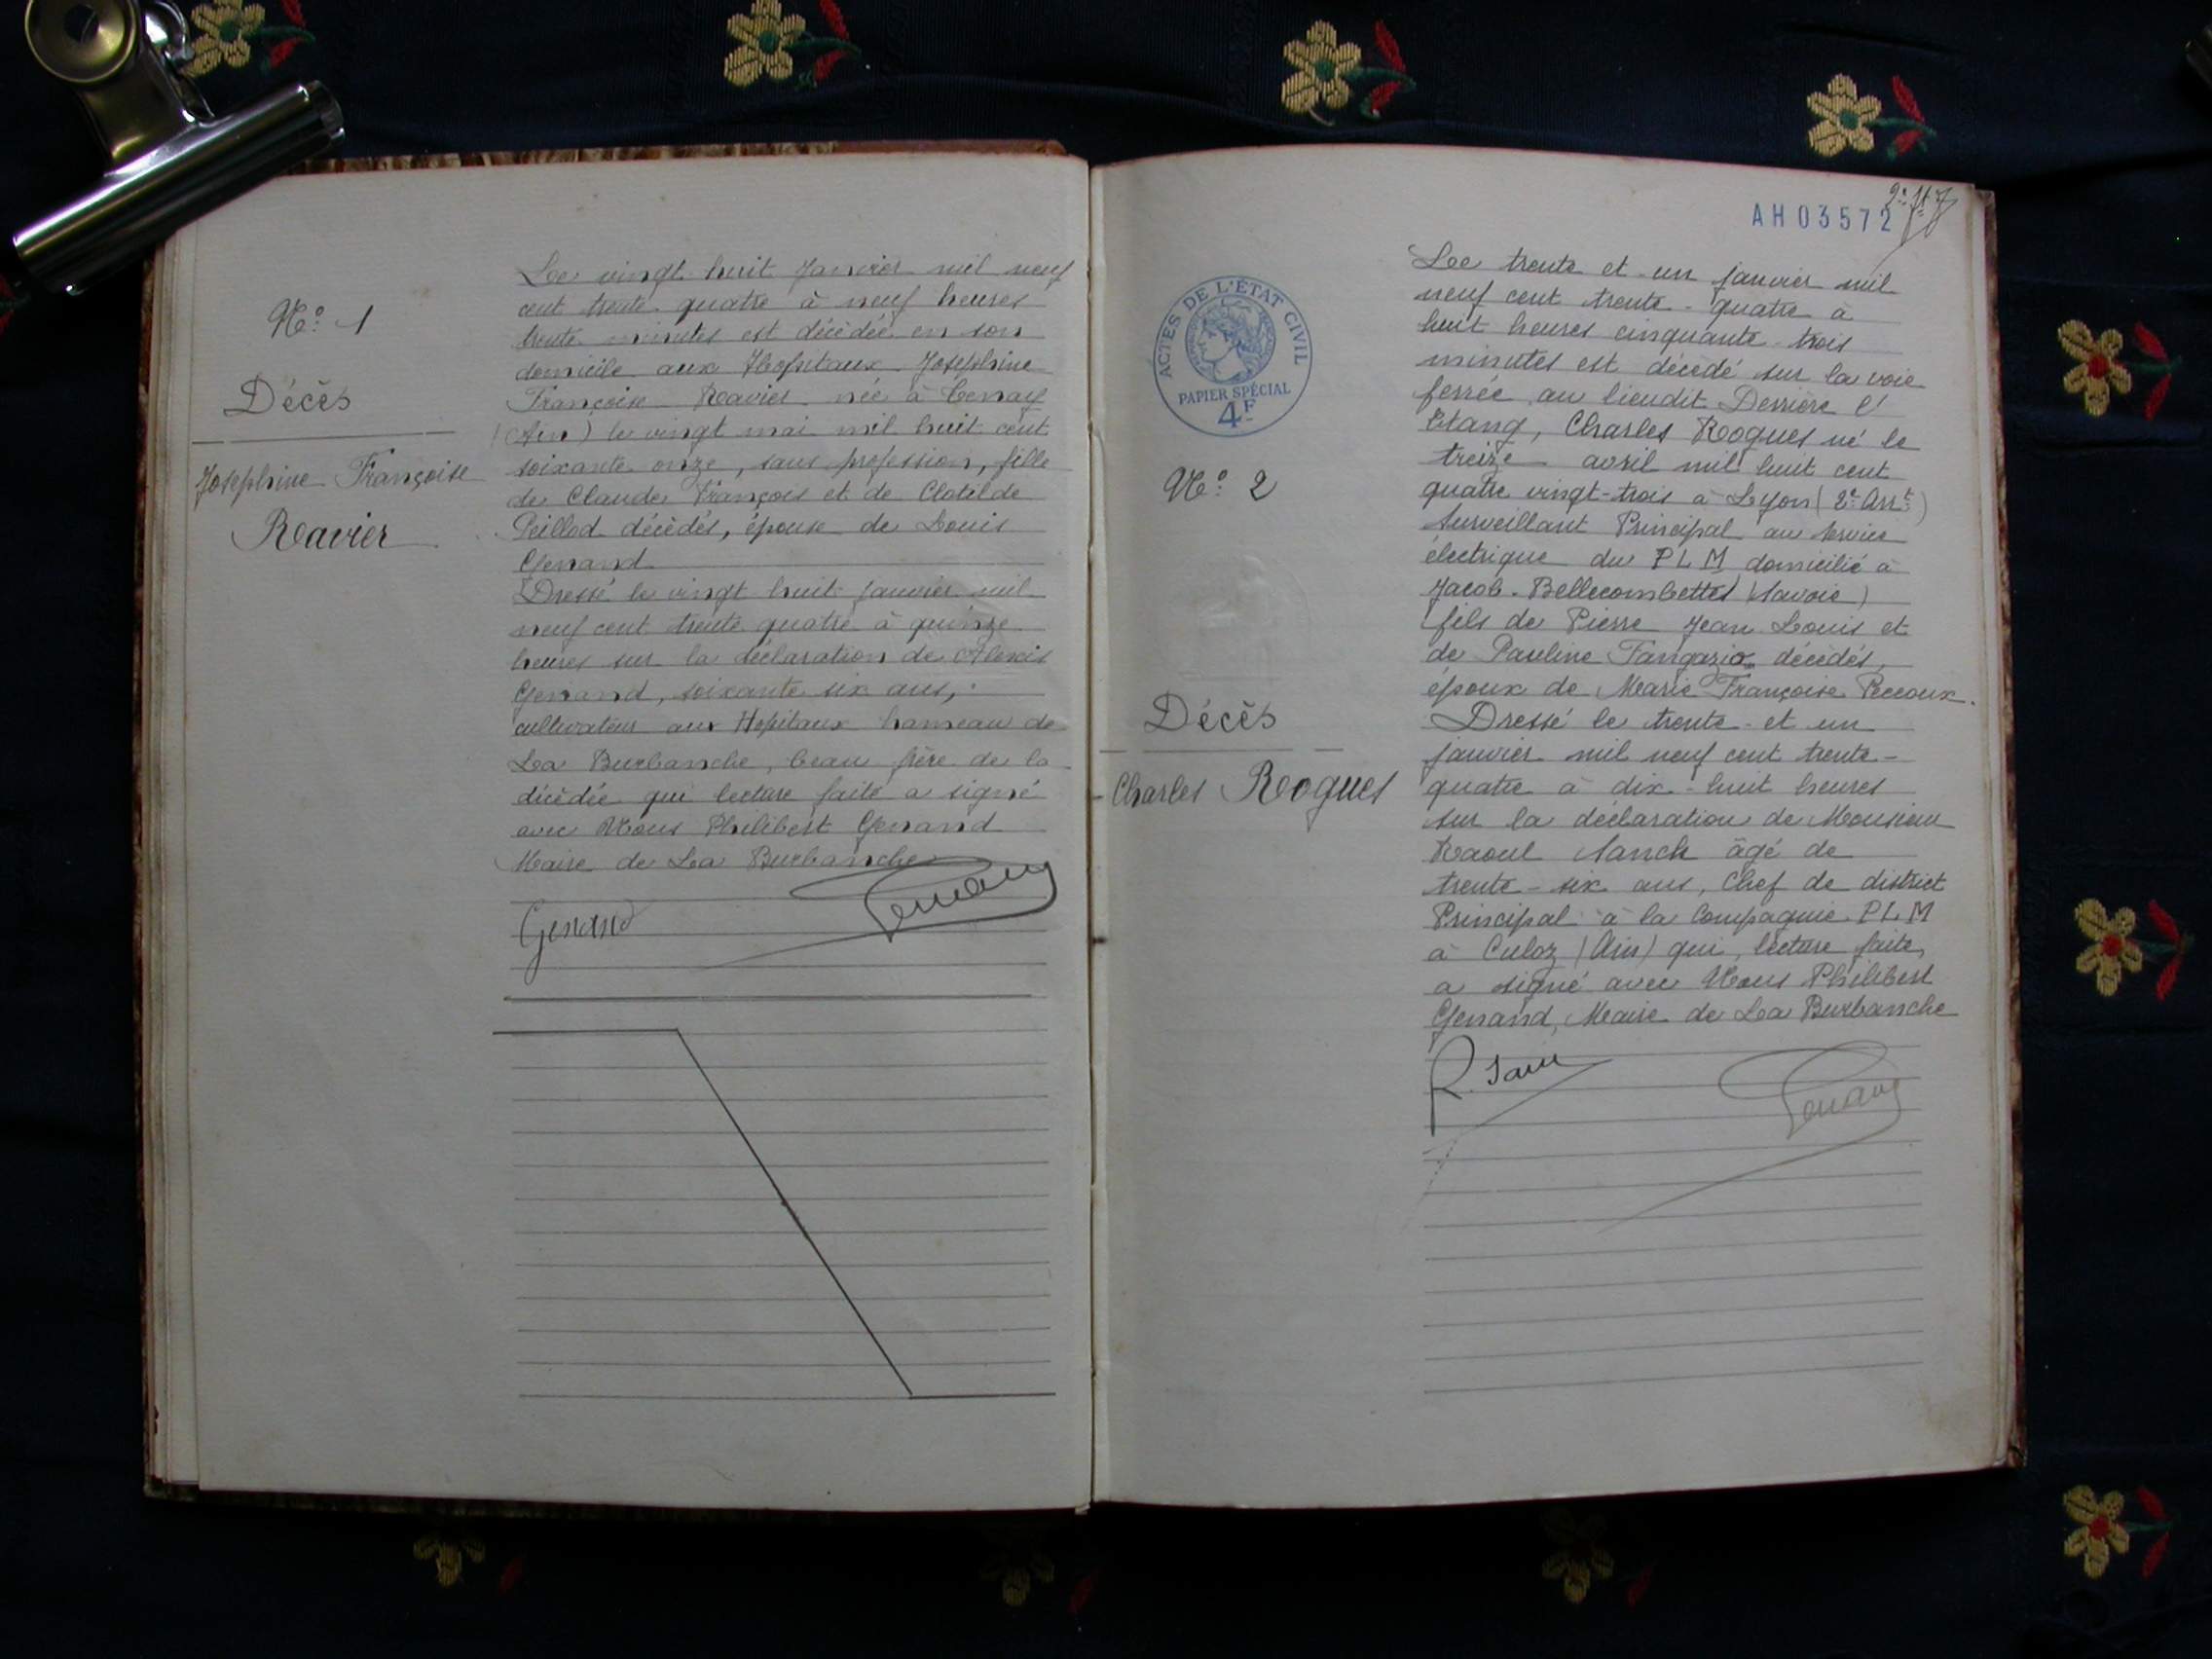 N° 1
Décès
Josephine Françoise
Ravier
Le vingt huit Janvier mil neuf
cent trente quatre à neuf heures
trente minutes est décédée en son
domicile aux Hopitaux Josephine
Françoise Ravier née à Tenay
(Ain) le vingt mai mil huit cent
soixante onze, sans profession, fille
de Claude François et de Clotilde
Peillod décédés, épouse de Louis
Genand
Dressé le vingt huit janvier mil
neuf cent trente quatre à quinze
heures sur la déclaration de Alexis
Genand, soixante six ans,
cultivateur aux Hopitaux hameau de
La Burbanche, beau frère de la
décédée qui lecture faite a signé
avec Nous Philibert Genand
Maire de La Burbanche
Genand
Genand
AH03572
ACTES DE L'ÉTAT CIVIL
PAPIER SPÉCIAL
4F
N° 2
Décès
Charles Rogues
Le trente et un janvier mil
neuf cent trente-quatre à
huit heures cinquante-trois
minutes est décédé sur la voie
ferrée au lieudit Derrière l'
Etang, Charles Rogues né le
treize avril mil huit cent
quatre vingt-trois à Lyon (2e Arrt)
Surveillant Principal au Service
électrique du PLM domicilié à
Jacob-Bellecombettes (Savoie)
fils de Pierre Jean Louis et
de Pauline Fangazio décédés,
époux de Marie Françoise Peccoux.
Dressé le trente-et un
janvier mil neuf cent trente-
quatre à dix-huit heures
sur la déclaration de Monsieur
Raoul Sanch âgé de
trente-six ans, Chef de district
Principal à la Compagnie PLM
à Culoz (Ain) qui, lecture faite,
a signé avec Nous Philibert
Genand, Maire de La Burbanche
Genand